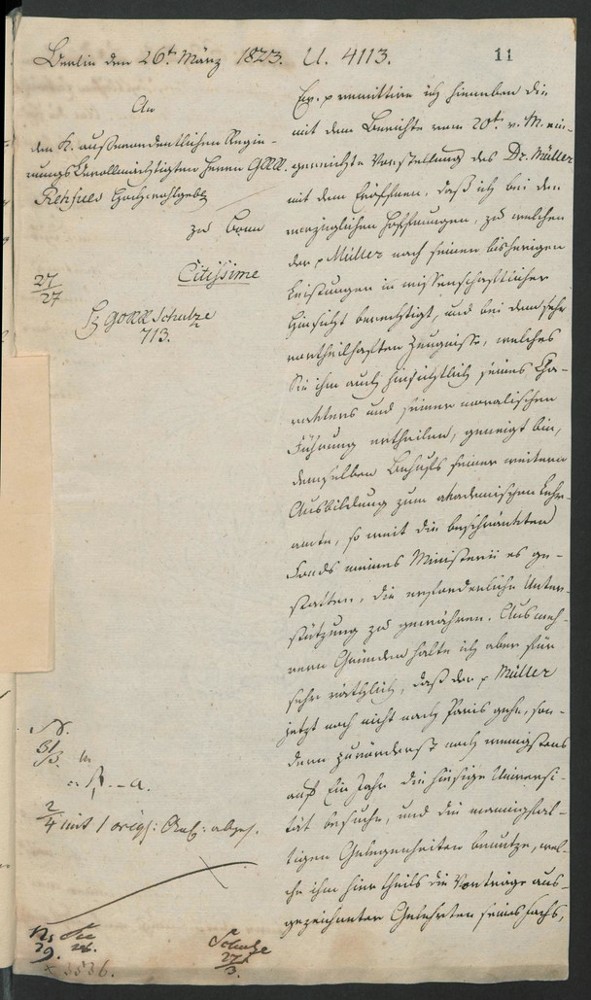 Berlin den 26t. März 1823. U. 4113.
11
An
den K. außerordentlichen Regie-
rungs Bevollmächtigten Herrn
Rehfues Hochwohlgeb
zu Bonn
Citissime
27
27
Schulze
713.
Ew. p remittire ich hieneben die
mit dem Berichte vom 20t. v. M. ein-
gereichte Vorstellung des Dr. Müller
mit dem Eröffnen, daß ich bei den
vorzüglichen Hoffnungen, zu welchen
der p Müller nach seinen bisherigen
Leistungen in wissenschaftlicher
Hinsicht berechtigt, und bei dem sehr
vortheilhaften Zeugnisse, welches
Sie ihm auch hinsichtlich seines Cha-
rakters und seiner moralischen
Führung ertheilen, geneigt bin,
demselben Behufs seiner weitern
Ausbildung zum akademischen Lehr-
amte, so weit die beschränkten
Fonds meines Ministerii es ge-
statten, die erforderliche Unter-
stützung zu gewähren. Aus meh-
rern Gründen halte ich aber für
sehr räthlich, daß der p Müller
jetzt noch nicht nach Paris gehe, son-
dern zuvörderst noch wenigstens
auf Ein Jahr die hiesige Universi-
tät besuche, und die mannigfal-
tigen Gelegenheiten benutze, wel-
che ihm hier theils die Vorträge aus-
gezeichneter Gelehrten seines Fachs,
31
3.
2
4 mit 1
29.
Schulze
27
3.